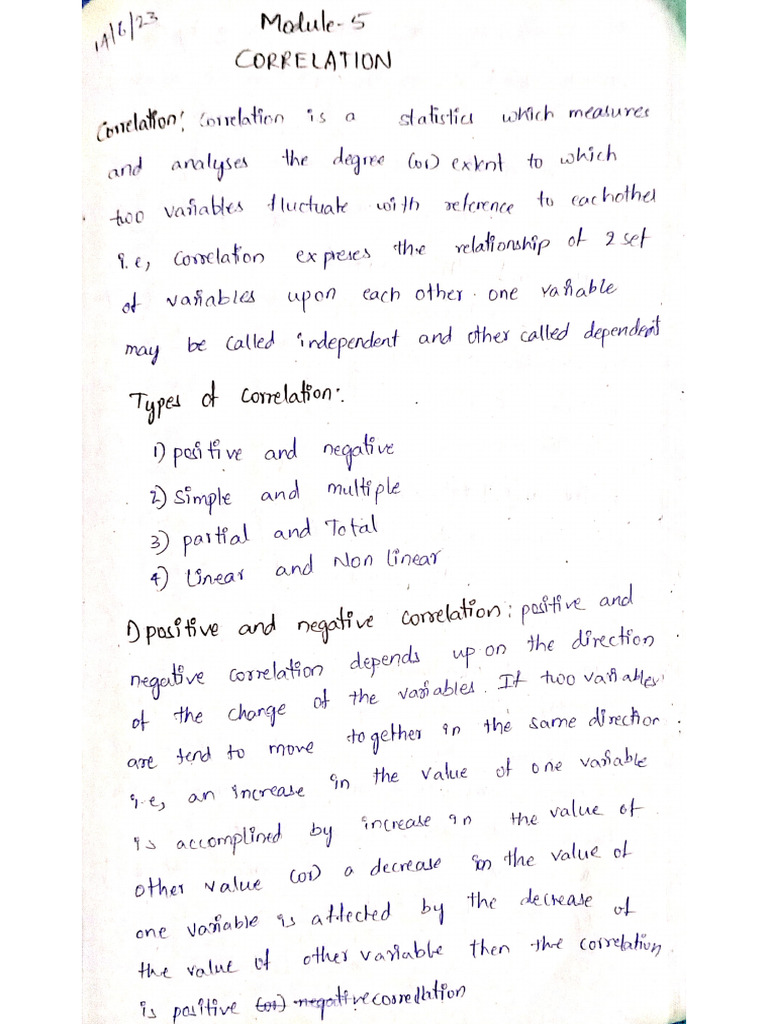 14/6/23
Module-5
CORRELATION
Correlation: Correlation is a statistics which measures
and analyses the degree (or) extent to which
two variables fluctuate with reference to eachother
i.e, correlation expreses the relationship of 2 set
of variables upon each other. one variable
may be called independent and other called dependent
Types of correlation:.
1) positive and negative
2) Simple and multiple
3) partial and Total
4) Linear and Non linear
1) positive and negative correlation: positive and
negative correlation depends up on the direction
of the change of the variables. If two variables
are tend to move together in the same direction
i.e, an increase in the value of one variable
is accomplined by increase in the value of
other value (or) a decrease in the value of
one variable is affected by the decrease of
the value of other variable then the correlation
is positive (or) negative correlation